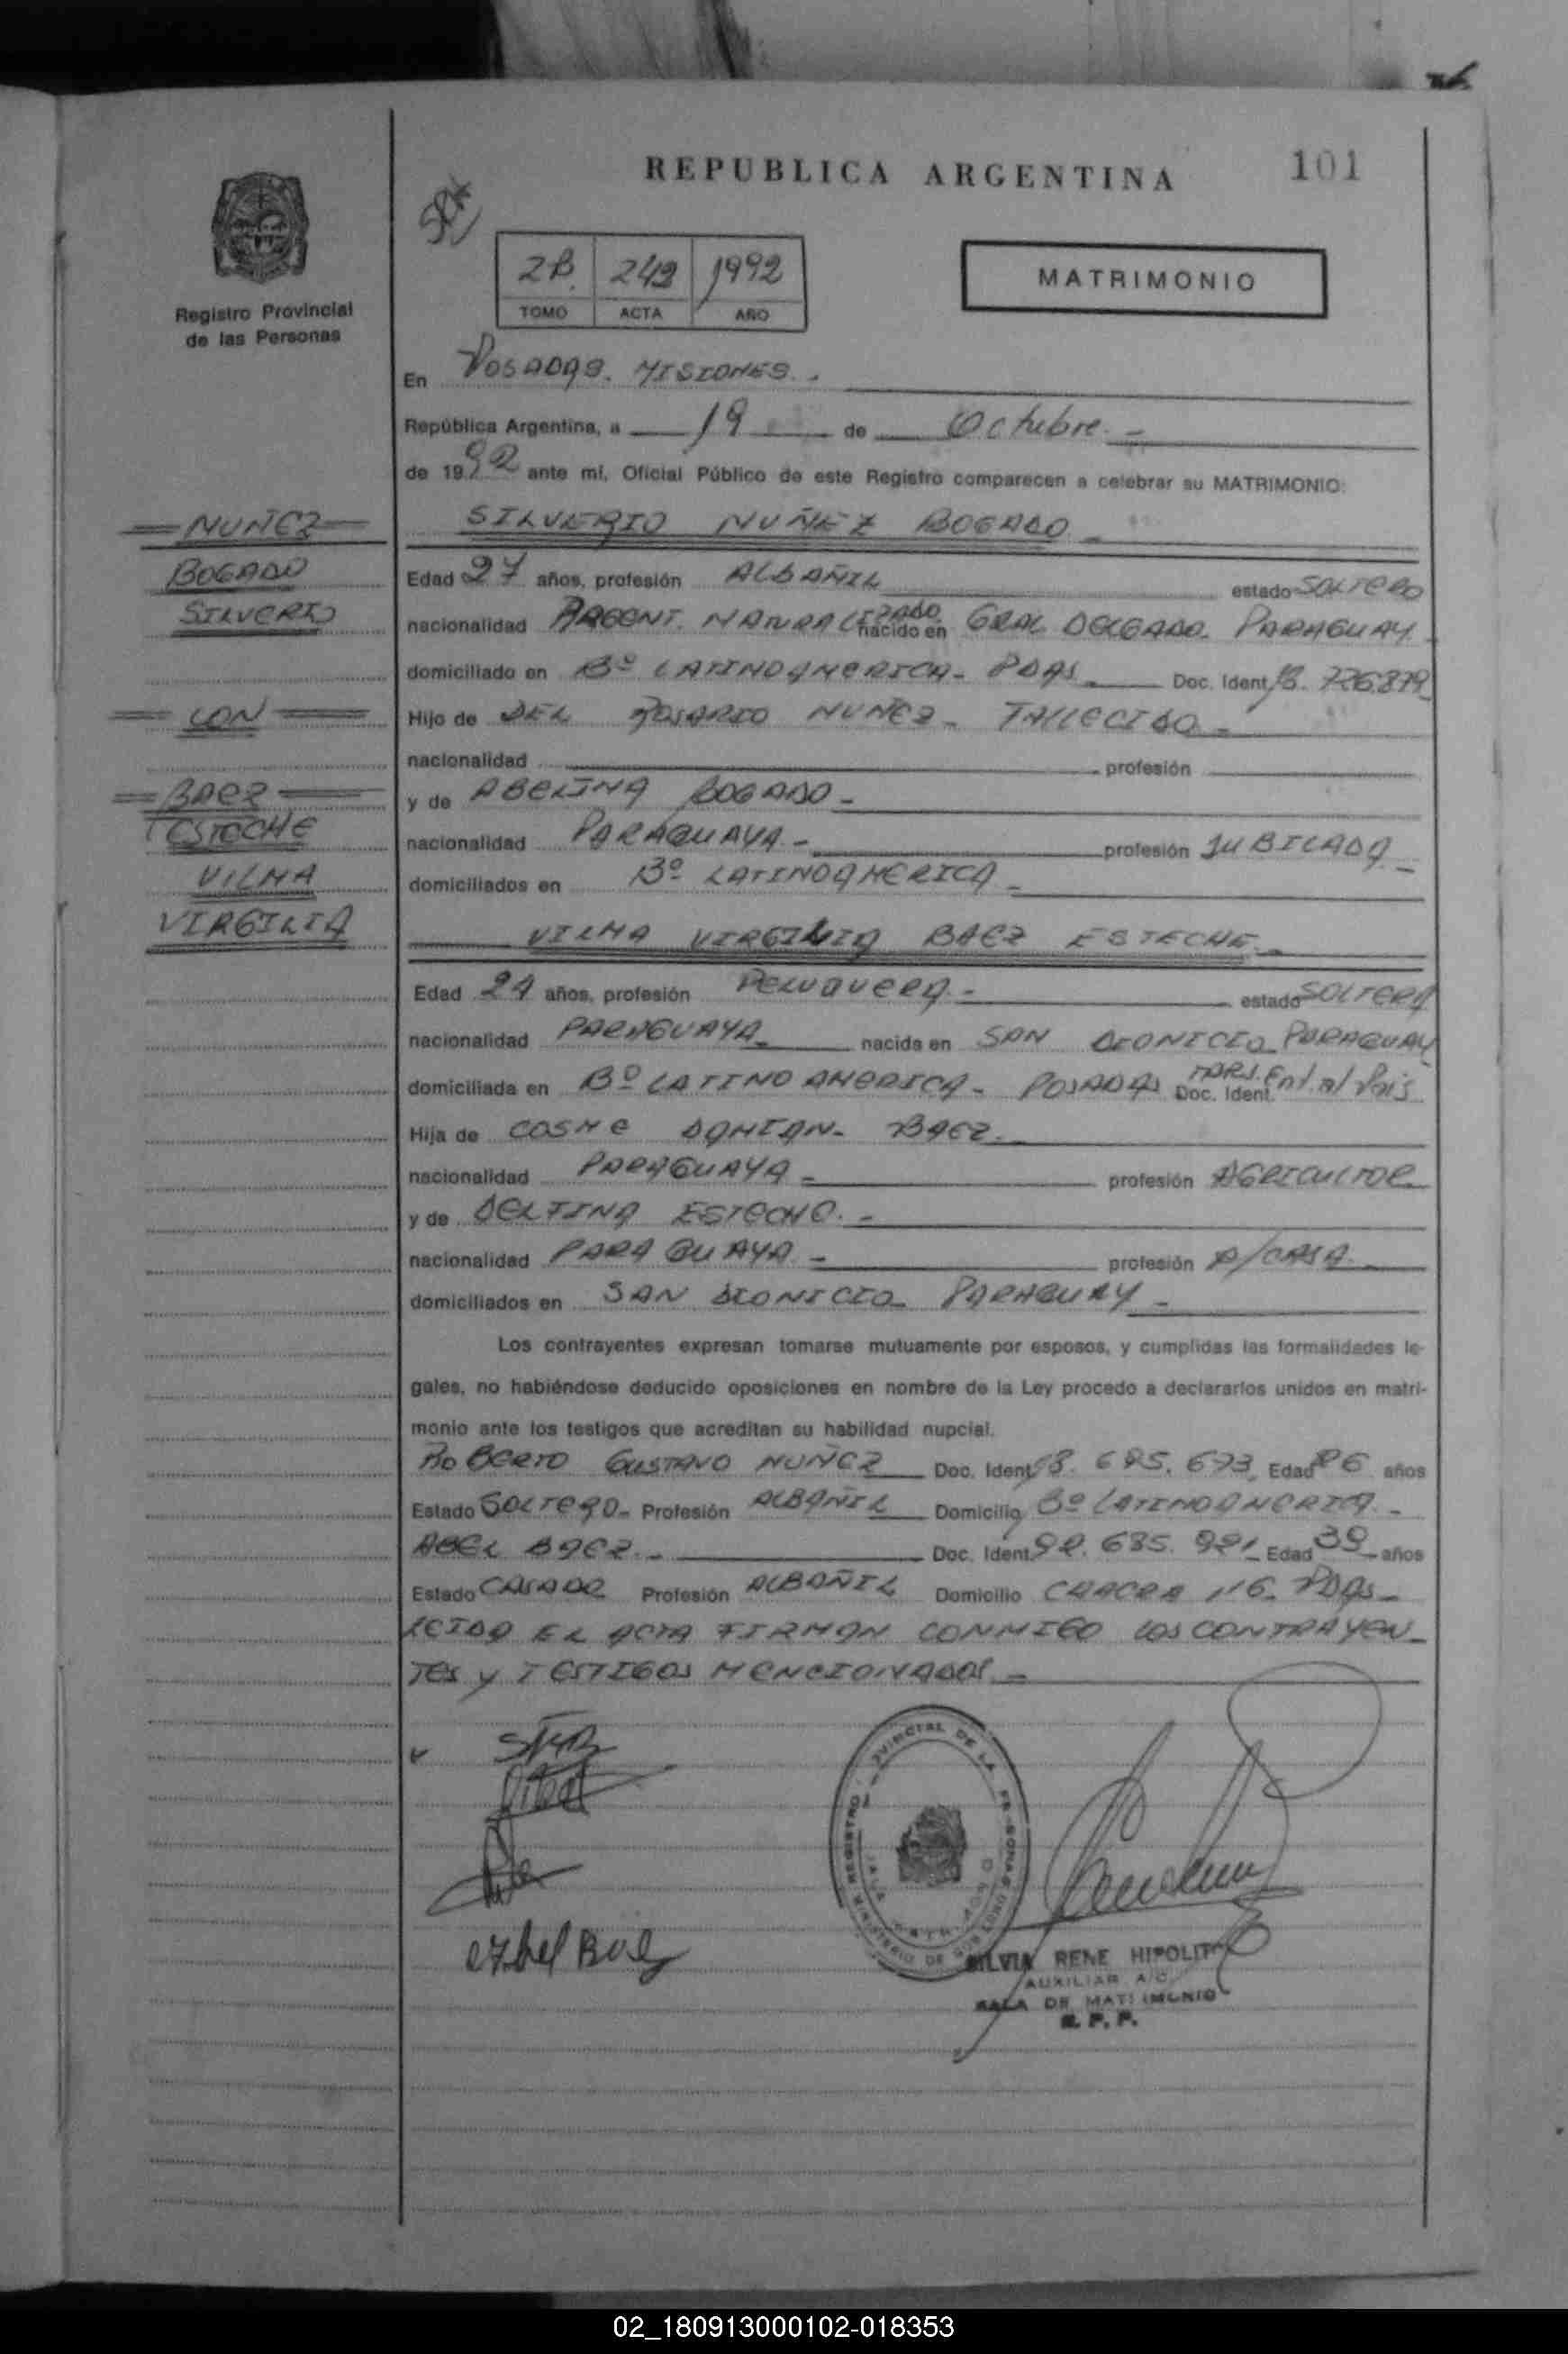 101
REPUBLICA ARGENTINA
2B. 242 1992
TOMO ACTA AÑO
MATRIMONIO
Registro Provincial
de las Personas
En POSADAS. MISIONES.-
República Argentina, a 19 de Octubre.-
de 1992 ante mí, Oficial Público de este Registro comparecen a celebrar su MATRIMONIO:
NUÑEZ
BOGADO
SILVERIO
CON
BAEZ
ESTECHE
VILMA
VIRGILIA
SILVERIO NUÑEZ BOGADO.-
Edad 27 años, profesión ALBAÑIL estado SOLTERO
nacionalidad ARGENT. NATURALIZADO. nacido en GRAL DELGADO. PARAGUAY.
domiciliado en Bº LATINOAMERICA- PDAS Doc. Ident. 18. 726.879
Hijo de DEL ROSARIO NUÑEZ- FALLECIDO.-
nacionalidad profesión
y de ABELINA BOGADO-
nacionalidad PARAGUAYA.- profesión JUBILADA.-
domiciliados en Bº LATINOAMERICA-
VILMA VIRGILIA BAEZ ESTECHE.-
Edad 24 años, profesión PELUQUERA.- estado SOLTERA
nacionalidad PARAGUAYA nacida en SAN DIONICIO PARAGUAY
domiciliada en Bº LATINO AMERICA- POSADAS Doc. Ident. TARJ. Ent. al Pais
Hija de COSME DAMIAN- BAEZ.
nacionalidad PARAGUAYA- profesión AGRICULTOR
y de DELFINA ESTECHE.-
nacionalidad PARAGUAYA.- profesión A/CASA.
domiciliados en SAN DIONICIO PARAGUAY-
Los contrayentes expresan tomarse mutuamente por esposos, y cumplidas las formalidades le-
gales, no habiéndose deducido oposiciones en nombre de la Ley procedo a declararlos unidos en matri-
monio ante los testigos que acreditan su habilidad nupcial.
ROBERTO GUSTAVO NUÑEZ Doc. Ident. 18. 695. 673 Edad 26 años
Estado SOLTERO- Profesión ALBAÑIL Domicilio Bº LATINOAMERICA.-
ABEL BAEZ.- Doc. Ident. 92. 635. 921 Edad 39 años
Estado CASADO Profesión ALBAÑIL Domicilio CHACRA 116- PDAS-
LEIDA EL ACTA FIRMAN CONMIGO LOS CONTRAYEN-
TES y TESTIGOS MENCIONADOS.-
SILVIA RENE HIPOLITO
AUXILIAR A/C
SALA DE MATRIMONIO
R. P. P.
02_180913000102-018353